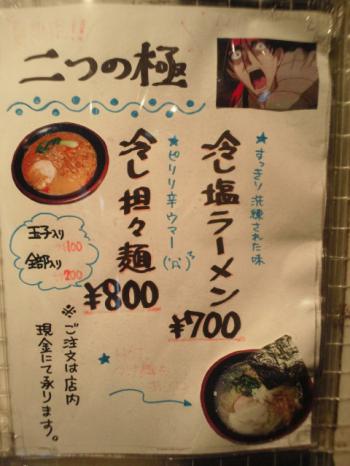 二つの極
★すっきり!洗練された味
冷し塩ラーメン
¥700
★ピリリ辛ウマー('Д')
冷し担々麺
¥800
玉子入り
+100
全部入り
+200
※ご注文は店内
現金にて承ります。
★